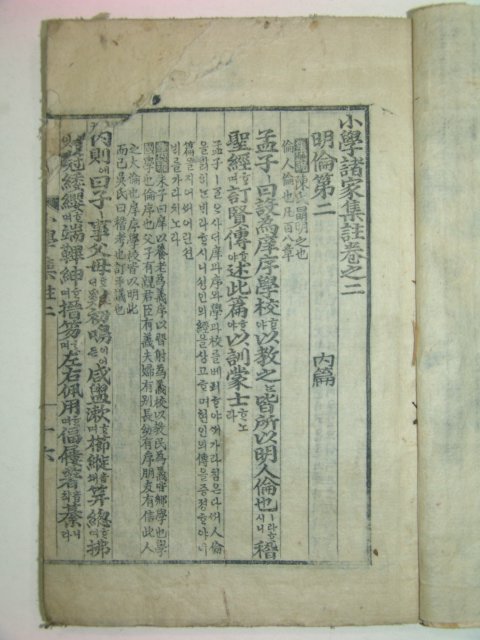 小學諸家集註卷之二
明倫第二 內篇
集說陳氏曰明明之也
倫人倫也凡百八章
孟子ㅣ曰設為庠序學校ᄒᆞ야以教之ᄂᆞᆫ皆所以明人倫也ㅣ라ᄒᆞ시니稽
聖經ᄒᆞ며訂賢傳ᄒᆞ야述此篇ᄒᆞ야以訓蒙士ᄒᆞ노라
孟子ㅣᄀᆞᆯᄋᆞ샤ᄃᆡ庠과序와學과校를베퍼ᄡᅥᄀᆞᄅᆞ침은다ᄡᅥ人倫
을ᄇᆞᆰ히ᄂᆞᆫ배라ᄒᆞ시니셩인의經을샹고ᄒᆞ며현인의傳을증졍ᄒᆞ야이
篇을지어ᄡᅥ어린션
ᄇᆡ를ᄀᆞᄅᆞ치노라
集說朱子曰庠以養老為義序以習射為義校以教民為義皆鄉學也學
國學也倫序也父子有親君臣有義夫婦有別長幼有序朋友有信此人
之大倫也庠序學校皆以明此
而已吳氏曰稽考也訂平議也
內則에曰子ㅣ事父母호ᄃᆡ初鳴이어든咸盥漱ᄒᆞ며櫛縰笄總ᄒᆞ며拂
髦冠緌纓ᄒᆞ며端韠紳ᄒᆞ며搢笏ᄒᆞ며左右佩用ᄒᆞ며偪屨著綦니라
小學集註二